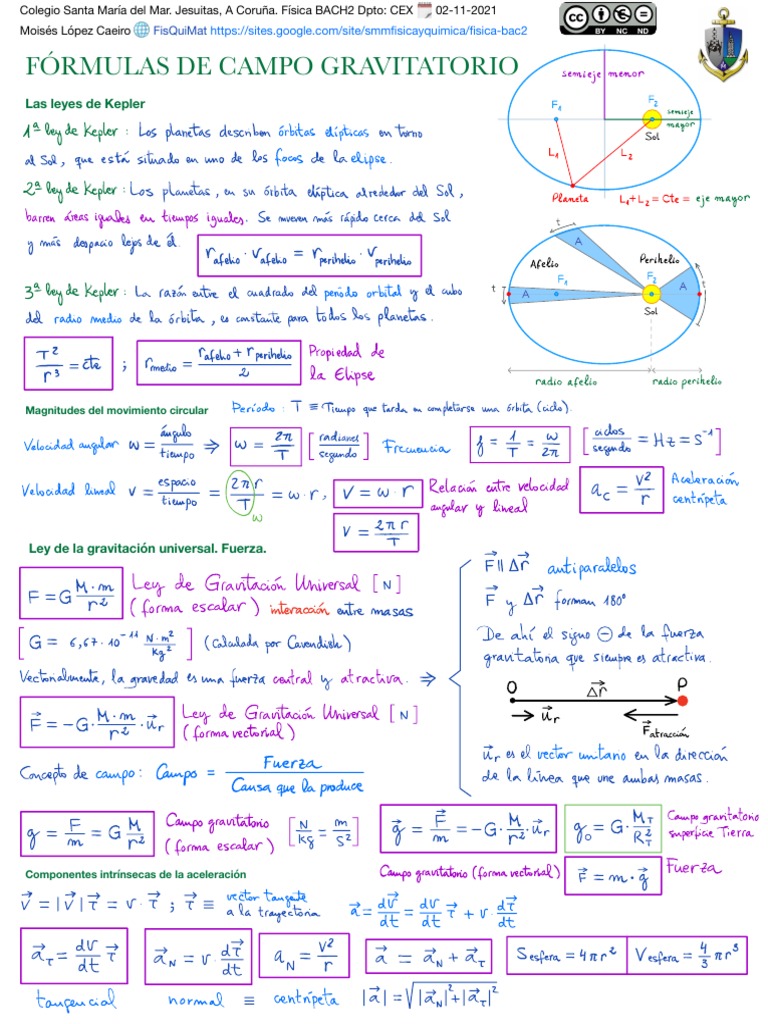 Colegio Santa María del Mar. Jesuitas, A Coruña. Física BACH2 Dpto: CEX 🗓 02-11-2021
Moisés López Caeiro 🌐 FisQuiMat https://sites.google.com/site/smmfisicayquimica/fisica-bac2
CC BY NC ND
FÓRMULAS DE CAMPO GRAVITATORIO
semieje menor
F₁ F₂
semieje mayor
Sol
L₁ L₂
Planeta
L₁+L₂ = Cte = eje mayor
Las leyes de Kepler
1ª ley de Kepler: Los planetas describen órbitas elípticas en torno
al Sol, que está situado en uno de los focos de la elipse.
2ª ley de Kepler: Los planetas, en su órbita elíptica alrededor del Sol,
barren áreas iguales en tiempos iguales. Se mueven más rápido cerca del Sol
y más despacio lejos de él. r_afelio · v_afelio = r_perihelio · v_perihelio
t A
Afelio Perihelio
F₁ F₂
t A A t
Sol
radio afelio radio perihelio
3ª ley de Kepler: La razón entre el cuadrado del periodo orbital y el cubo
del radio medio de la órbita, es constante para todos los planetas.
T²/r³ = cte ; r_medio = (r_afelio + r_perihelio)/2 Propiedad de
la Elipse
Magnitudes del movimiento circular Período: T ≡ Tiempo que tarda en completarse una órbita (ciclo).
Velocidad angular w = ángulo/tiempo ⇒ w = 2π/T [radianes/segundo] Frecuencia f = 1/T = w/2π [ciclos/segundo = Hz = s⁻¹]
Velocidad lineal v = espacio/tiempo = 2πr/T = w·r, v = w·r Relación entre velocidad
angular y lineal a_c = v²/r Aceleración
centrípeta
w
v = 2πr/T
Ley de la gravitación universal. Fuerza.
F = G M·m/r² Ley de Gravitación Universal [N]
(forma escalar) interacción entre masas
[G = 6,67·10⁻¹¹ N·m²/kg²] (Calculada por Cavendish)
Vectorialmente, la gravedad es una fuerza central y atractiva. ⇒
F⃗ = -G·M·m/r²·u⃗r Ley de Gravitación Universal [N]
(forma vectorial)
F⃗ ∥ Δr⃗ antiparalelos
F⃗ y Δr⃗ forman 180°
De ahí el signo ⊖ de la fuerza
gravitatoria que siempre es atractiva.
O Δr⃗ P
u⃗r F⃗atracción
u⃗r es el vector unitario en la dirección
de la línea que une ambas masas.
Concepto de campo: Campo = Fuerza/Causa que la produce
g = F/m = G M/r² Campo gravitatorio
(forma escalar) [N/kg = m/s²]
g⃗ = F⃗/m = -G·M/r²·u⃗r g₀ = G·M_T/R_T² Campo gravitatorio
superficie Tierra
Campo gravitatorio (forma vectorial) F⃗ = m·g⃗ Fuerza
Componentes intrínsecas de la aceleración
v⃗ = |v⃗| τ⃗ = v·τ⃗ ; τ⃗ ≡ vector tangente
a la trayectoria a⃗ = dv⃗/dt = dv/dt τ⃗ + v·dτ⃗/dt
a⃗_T = dv/dt τ⃗ a⃗_N = v·dτ⃗/dt a_N = v²/r a⃗ = a⃗_N + a⃗_T S_esfera = 4πr² V_esfera = 4/3 πr³
tangencial normal ≡ centrípeta |a⃗| = √(|a⃗_N|² + |a⃗_T|²)